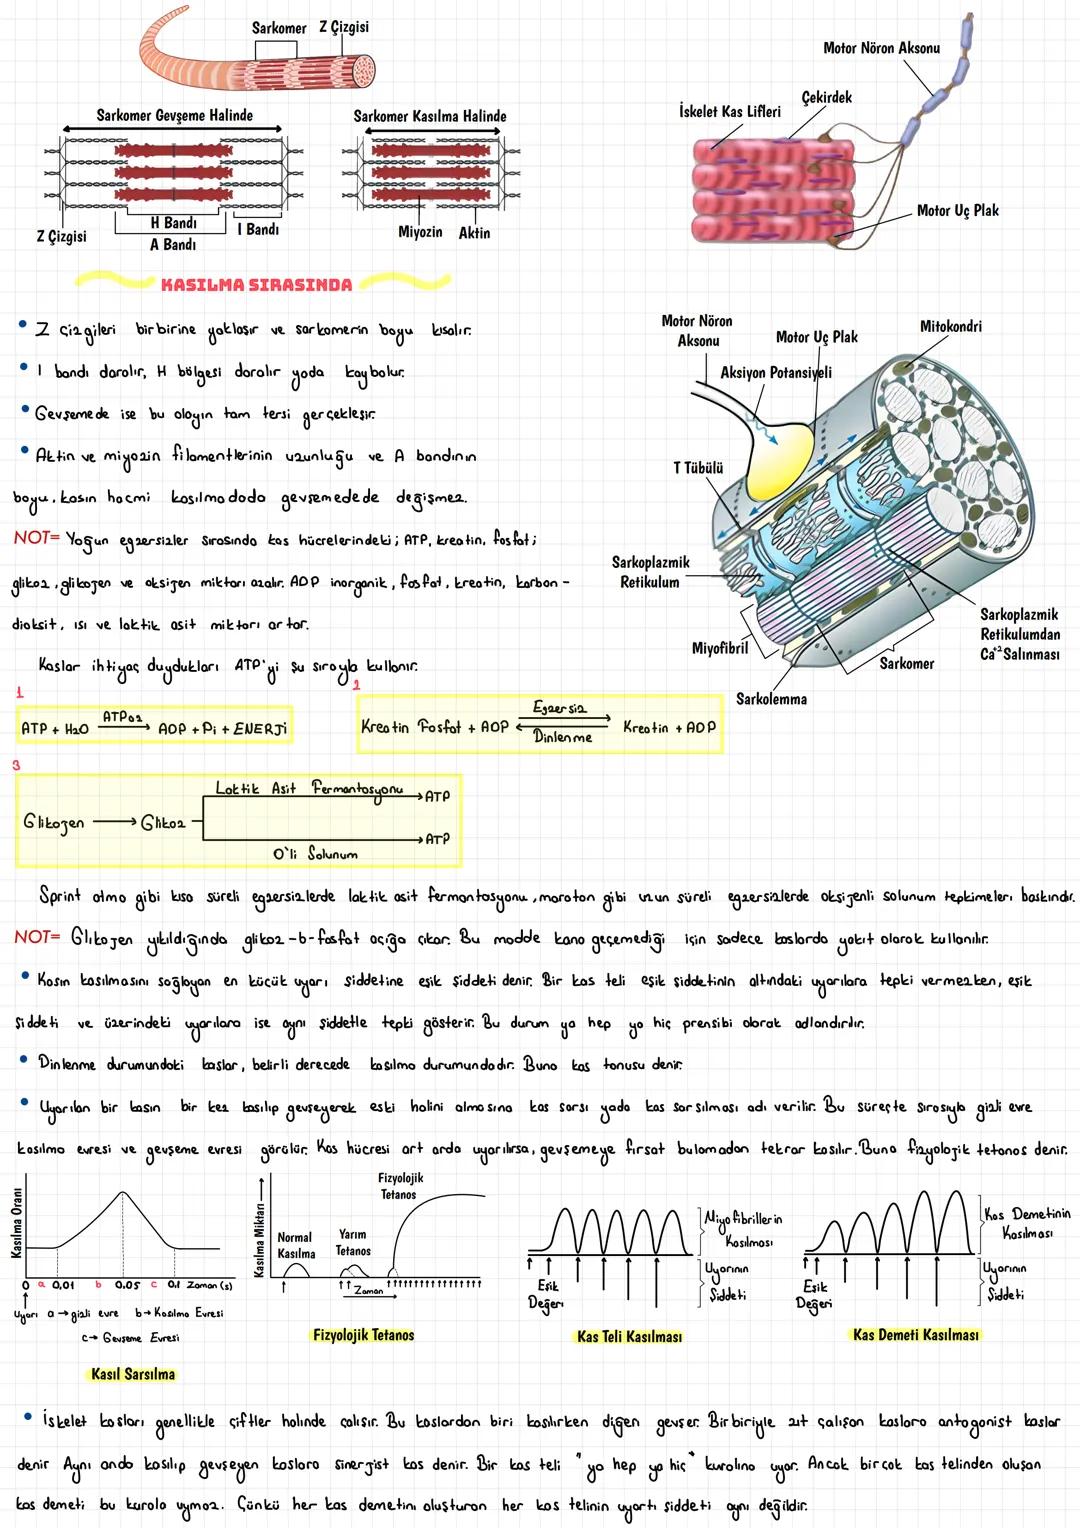 Sarkomer Z Çizgisi
Sarkomer Gevşeme Halinde
Sarkomer Kasılma Halinde
H Bandı
A Bandı
I Bandı
Z Çizgisi
Miyozin Aktin
Motor Nöron Aksonu
Çekirdek
İskelet Kas Lifleri
Motor Uç Plak
KASILMA SIRASINDA
• Z çizgileri birbirine yaklaşır ve sarkomerin boyu kısalır.
• I bandı daralır, H bölgesi daralır yada kaybolur.
• Gevşemede ise bu olayın tam tersi gerçekleşir.
• Aktin ve miyozin filamentlerinin uzunluğu ve A bandının
boyu, kasın hacmi kasılmadada gevşemedede değişmez.
NOT= Yoğun egzersizler sırasında kas hücrelerindeki; ATP, kreatin, fosfat;
glikoz, glikojen ve oksijen miktarı azalır. ADP inorganik, fosfat, kreatin, karbon-
dioksit, ısı ve laktik asit miktarı artar.
Kaslar ihtiyaç duydukları ATP'yi şu sırayla kullanır.
Motor Nöron
Aksonu
Motor Uç Plak
Mitokondri
Aksiyon Potansiyeli
T Tübülü
Sarkoplazmik
Retikulum
Miyofibril
Sarkolemma
Sarkomer
Sarkoplazmik
Retikulumdan
Ca+2 Salınması
1
ATP + H2O ATPaz ADP + Pi + ENERJİ
2
Kreatin Fosfat + ADP Egzersiz Dinlenme Kreatin + ADP
3
Glikojen Glikoz
Laktik Asit Fermantasyonu ATP
O'li Solunum ATP
Sprint atma gibi kısa süreli egzersizlerde laktik asit fermantasyonu, maraton gibi uzun süreli egzersizlerde oksijenli solunum tepkimeleri baskındır.
NOT= Glikojen yıkıldığında glikoz-b-fosfat açığa çıkar. Bu madde kana geçemediği için sadece kaslarda yakıt olarak kullanılır.
• Kasın kasılmasını sağlayan en küçük uyarı şiddetine eşik şiddeti denir. Bir kas teli eşik şiddetinin altındaki uyarılara tepki vermezken, eşik
şiddeti ve üzerindeki uyarılara ise aynı şiddetle tepki gösterir. Bu durum ya hep ya hiç prensibi olarak adlandırılır.
• Dinlenme durumundaki kaslar, belirli derecede kasılma durumundadır. Buna kas tonusu denir.
• Uyarılan bir kasın bir kez kasılıp gevşeyerek eski halini almasına kas sarsı yada kas sarsılması adı verilir. Bu süreçte sırasıyla gizli evre
kasılma evresi ve gevşeme evresi görülür. Kas hücresi art arda uyarılırsa, gevşemeye fırsat bulamadan tekrar kasılır. Buna fizyolojik tetanos denir.
Kasılma Oranı
0 a 0,01 b 0.05 c 0.1 Zaman (s)
Uyarı a → gizli evre b → Kasılma Evresi
c → Gevşeme Evresi
Kasıl Sarsılma
Kasılma Miktarı
Normal
Kasılma
Yarım
Tetanos
Fizyolojik
Tetanos
Zaman
Fizyolojik Tetanos
Miyofibrillerin
Kasılması
Eşik
Değeri
Uyarının
Şiddeti
Kas Teli Kasılması
Kas Demetinin
Kasılması
Eşik
Değeri
Uyarının
Şiddeti
Kas Demeti Kasılması
• İskelet kasları genellikle çiftler halinde çalışır. Bu kaslardan biri kasılırken diğeri gevşer. Birbiriyle zıt çalışan kaslara antagonist kaslar
denir Aynı anda kasılıp gevşeyen kaslara sinerjist kas denir. Bir kas teli "ya hep ya hiç" kuralına uyar. Ancak birçok kas telinden oluşan
kas demeti bu kurala uymaz. Çünkü her kas demetini oluşturan her kas telinin uyartı şiddeti aynı değildir.